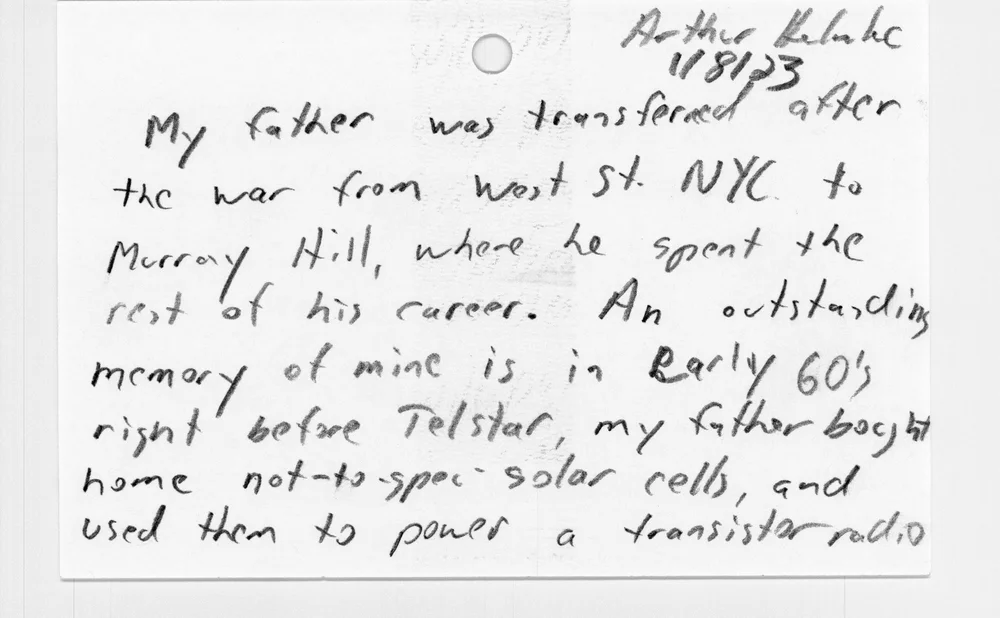 Arthur
1/8/23
My father was transferred after
the war from West St. NYC. to
Murray Hill, where he spent the
rest of his career. An outstanding
memory of mine is in Early 60's
right before Telstar, my father bought
home not-to-spec solar cells, and
used them to power a transistor radio